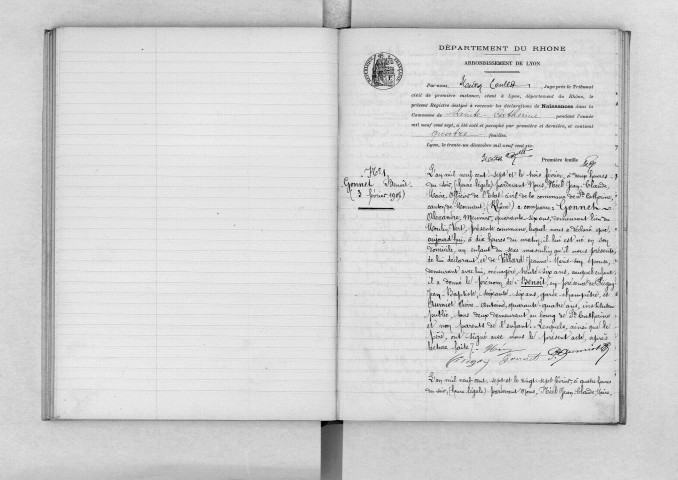 DÉPARTEMENT DU RHONE
ARRONDISSEMENT DE LYON
Par nous, Juge près le Tribunal
civil de première instance, séant à Lyon, département du Rhône, le
présent Registre destiné à recevoir les déclarations de Naissances dans la
Commune de Sainte Catherine pendant l'année
mil neuf cent sept, a été coté et paraphé par première et dernière, et contient
quatre feuilles.
Lyon, le trente-un décembre mil neuf cent six.
Première feuille
N° 1
Gonnet Benoît
(3 février 190
L'an mil neuf cent sept et le trois février, à deux heures
du soir, (heure légale) pardevant Nous, Jean Claude,
Maire, Officier de l'Etat civil de la commune de Ste Catherine,
canton de Mornant, (Rhône) a comparu: Gonnet
Alexandre, meunier, quarante six ans, demeurant lieu du
Moulin Vert, présente commune, lequel nous a déclaré que,
aujourd'hui, à dix heures du matin, il lui est né en son
domicile, un enfant du sexe masculin qu'il nous présente,
de lui déclarant, et de Villard Jeanne Marie son épouse,
demeurant avec lui, ménagère, trente six ans, auquel enfant
il a donné le prénom de: Benoît, en présence de
Jean Baptiste, soixante six ans, garde champêtre, et
Pierre Antoine, quarante quatre ans, instituteur
public, tous deux demeurant au bourg de Ste Catherine
et non parents de l'enfant. Lesquels, ainsi que le
père, ont signé avec nous le présent acte, après
lecture faite.
Gonnet
L'an mil neuf cent sept et le vingt sept février, à quatre heures
du soir, (heure légale) pardevant Nous, Jean Claude, Maire,